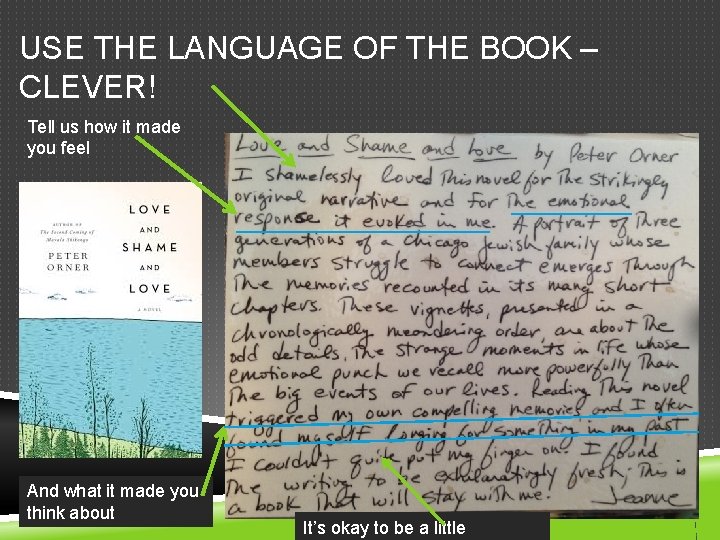 USE THE LANGUAGE OF THE BOOK –
CLEVER!
Tell us how it made
you feel
LOVE
AND
SHAME
AND
LOVE
A NOVEL
AUTHOR OF
The Second Coming of
Mavala Shikongo
PETER
ORNER
Love and Shame and Love by Peter Orner
I shamelessly loved this novel for the strikingly
original narrative and for the emotional
response it evoked in me. A portrait of three
generations of a Chicago Jewish family whose
members struggle to connect emerges through
the memories recounted in its many short
chapters. These vignettes, presented in a
chronologically meandering order, are about the
odd details, the strange moments in life whose
emotional punch we recall more powerfully than
the big events of our lives. Reading this novel
triggered my own compelling memories and I often
found myself longing for something in my past
I couldn't quite put my finger on. I found
the writing to be exhilaratingly fresh; this is
a book that will stay with me. Jeanne
And what it made you
think about
It's okay to be a little